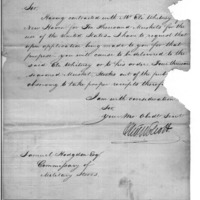 Sir
Having contracted with Mr Eli Whitney of
New Haven for Ten Thousand Muskets for the
use of the United States I have to request that
upon application being made to you for that
purpose you will cause to be delivered to the
said Eli Whitney or to his order Two thousand
Musket Stocks out of the public
observing to take proper receipts therefor
I am with consideration
Sir
your Mo Obedt Servt
Samuel Hodgdon Esq
Commissary of
Military Stores